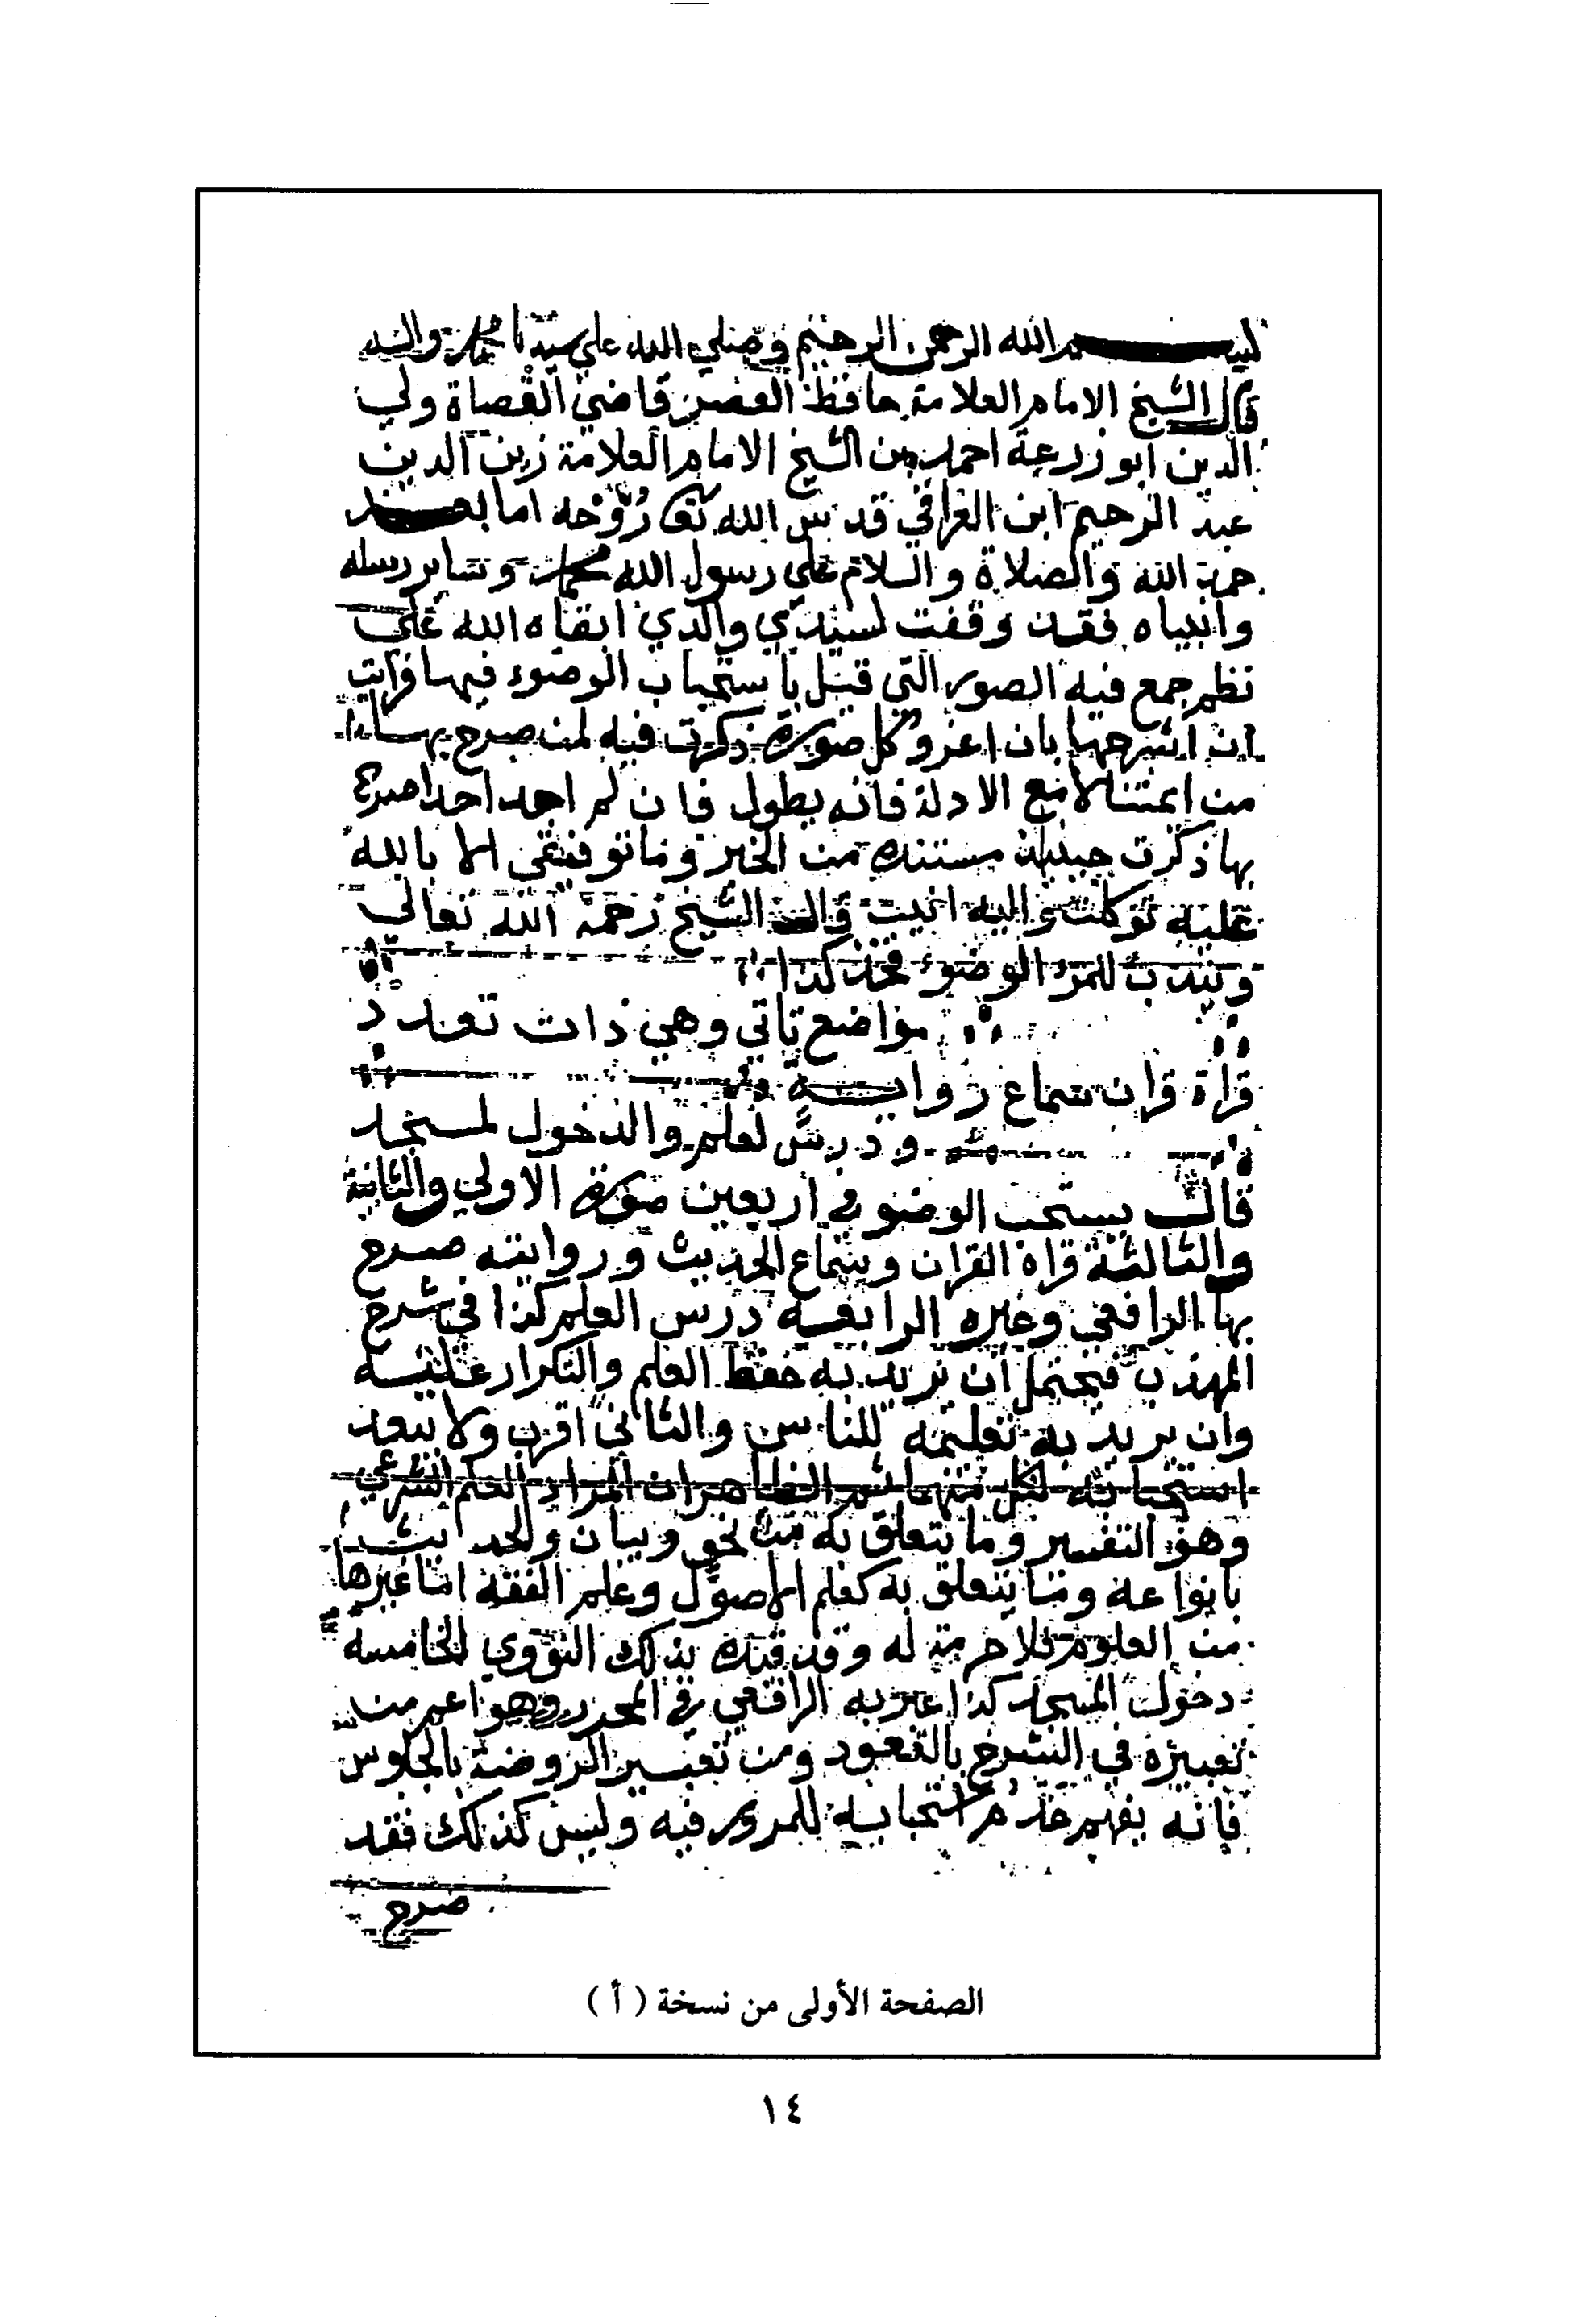 بسم الله الرحمن الرحيم وصلي الله علي سيدنا محمد واله
قال الشيخ الامام العلامة حافظ العصر قاضي القضاة ولي
الدين ابو زرعة احمد بن الشيخ الامام العلامة زين الدين
عبد الرحيم ابن العراقي قدس الله روحه اما بعد
حمد الله والصلاة والسلام علي رسول الله محمد وساير رسله
وانبياه فقد وقفت لسيدي والدي ابقاه الله علي
نظم جمع فيه الصور التي قيل باستحباب الوضوء فيها فرايت
ان اشرحها بان اعزو كل صورة ذكرت فيه لمن صرح بها
من ايمتنا لا مع الادلة فانه يطول فان لم اجد احدا صرح
بها ذكرت حينيذ مستنده من الخبر وما توفيقي الا بالله
عليه توكلت واليه انيب قال الشيخ رحمه الله تعالي
ويندب للمرء الوضوء فخذ كذا
مواضع تاتي وهي ذات تعدد
قراة قران سماع رواية
ودرس لعلم والدخول لمسجد
قال يستحب الوضو في اربعين صورة الاولي والثانية
والثالثة قراة القران وسماع الحديث وروايته صرح
بها الرافعي وغيره الرابعة درس العلم كذا في شرح
المهذب فيحتمل ان يريد به حفظ العلم والتكرار عليه
وان يريد به تعليمه للناس والثاني اقرب ولا يبعد
استحبابه لكل منهما ثم الظاهر ان المراد العلم الشرعي
وهو التفسير وما يتعلق به من نحو وبيان والحديث
بانواعه وما يتعلق به كعلم الاصول وعلم الفقه اما غيرها
من العلوم فلا حرمة له وقد قيده بذلك النووي الخامسة
دخول المسجد كذا عبر به الرافعي في المحرر وهو اعم من
تعبيره في الشرح بالقعود ومن تعبير الروضة بالجلوس
فانه يفهم عدم استحبابه للمرور فيه وليس كذلك فقد
صرح
الصفحة الأولى من نسخة ( أ )
١٤